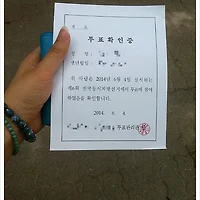 투 표 확 인 증
성 명 :
생년월일 :
위 사람은 2014년 6월 4일 실시하는
제6회 전국동시지방선거에서 투표에 참여
하였음을 확인합니다.
2014. 6. 4.
투표관리관